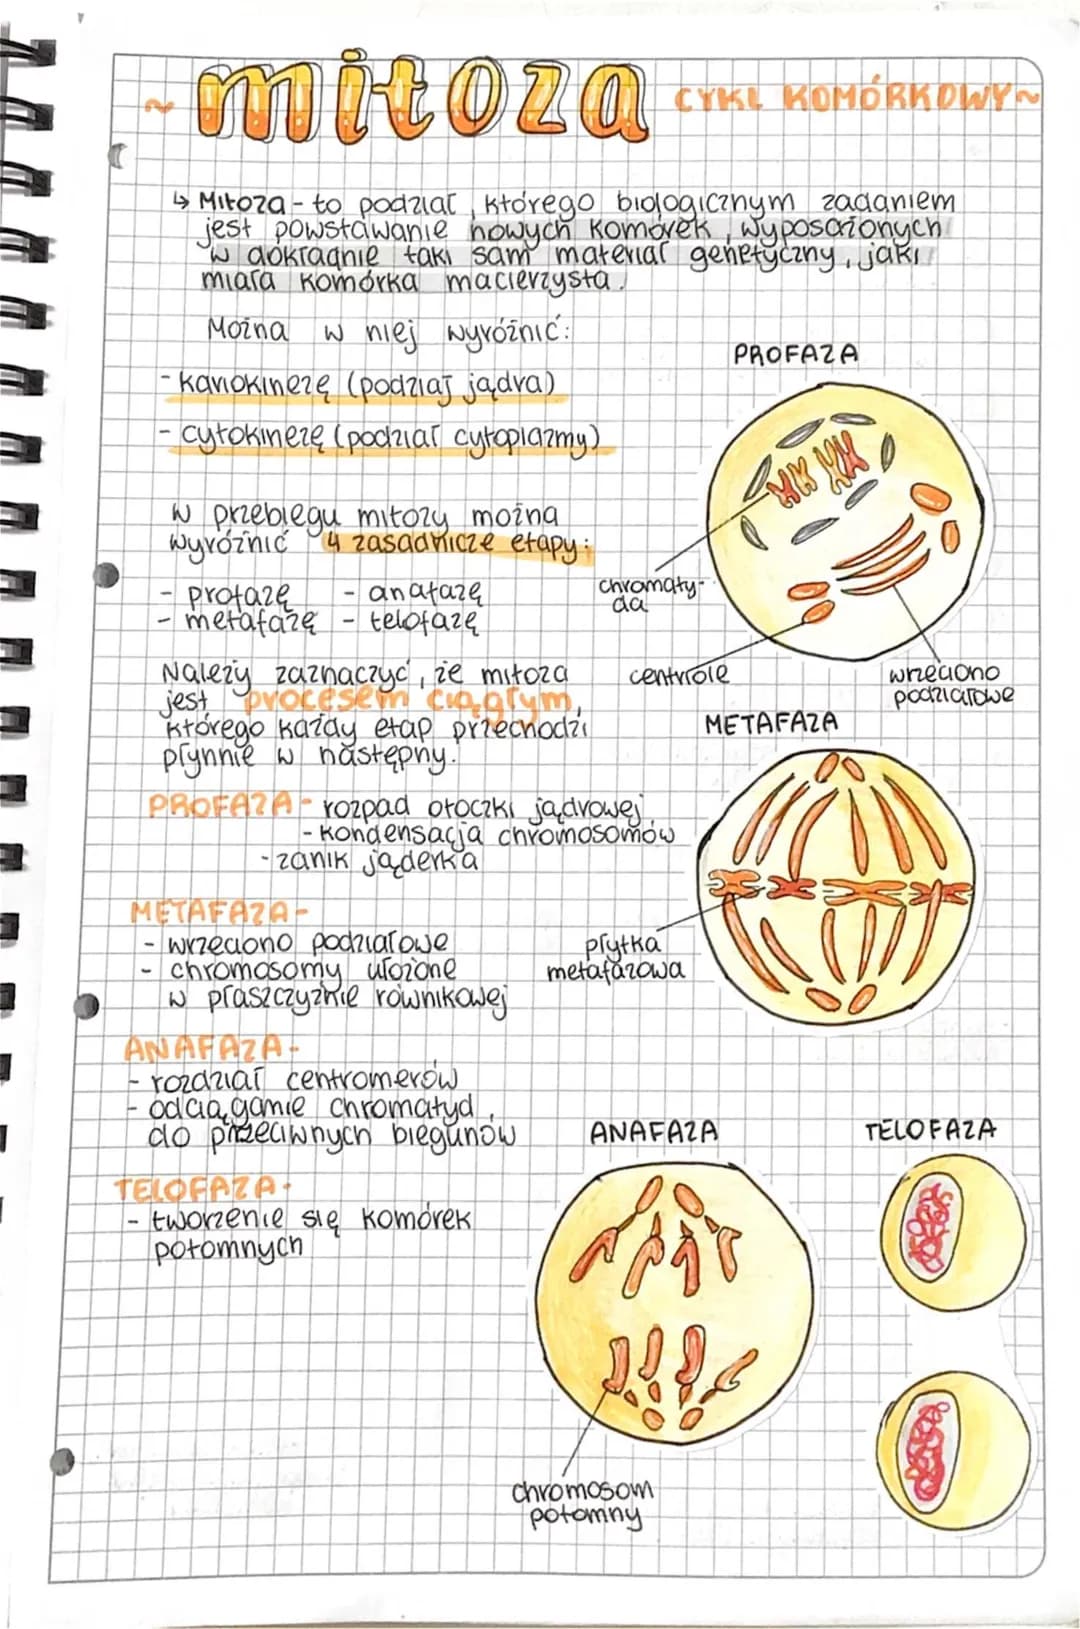 ~ mitoza CYKL KOMÓRKOWY ~
↳ Mitoza - to podział, którego biologicznym zadaniem
jest powstawanie nowych komórek, wyposażonych
w dokładnie taki sam materiał genetyczny, jaki
miała komórka macierzysta.
Można w niej wyróżnić:
- kariokinezę (podział jądra)
- cytokinezę (podział cytoplazmy)
w przebiegu mitozy można
wyróżnić 4 zasadnicze etapy:
- profazę - anafazę
- metafazę - telofazę
Należy zaznaczyć, że mitoza
jest procesem ciągłym,
którego każdy etap przechodzi
płynnie w następny.
PROFAZA - rozpad otoczki jądrowej,
- kondensacja chromosomów
- zanik jąderka
METAFAZA -
- wrzeciono podziałowe
- chromosomy ułożone
w płaszczyźnie równikowej
ANAFAZA -
- rozdział centromerów
- odciąganie chromatyd,
do przeciwnych biegunów
TELOFAZA -
- tworzenie się komórek
potomnych
PROFAZA
chromaty-
da
centriole
wrzeciono
podziałowe
METAFAZA
płytka
metafazowa
ANAFAZA
chromosom
potomny
TELOFAZA